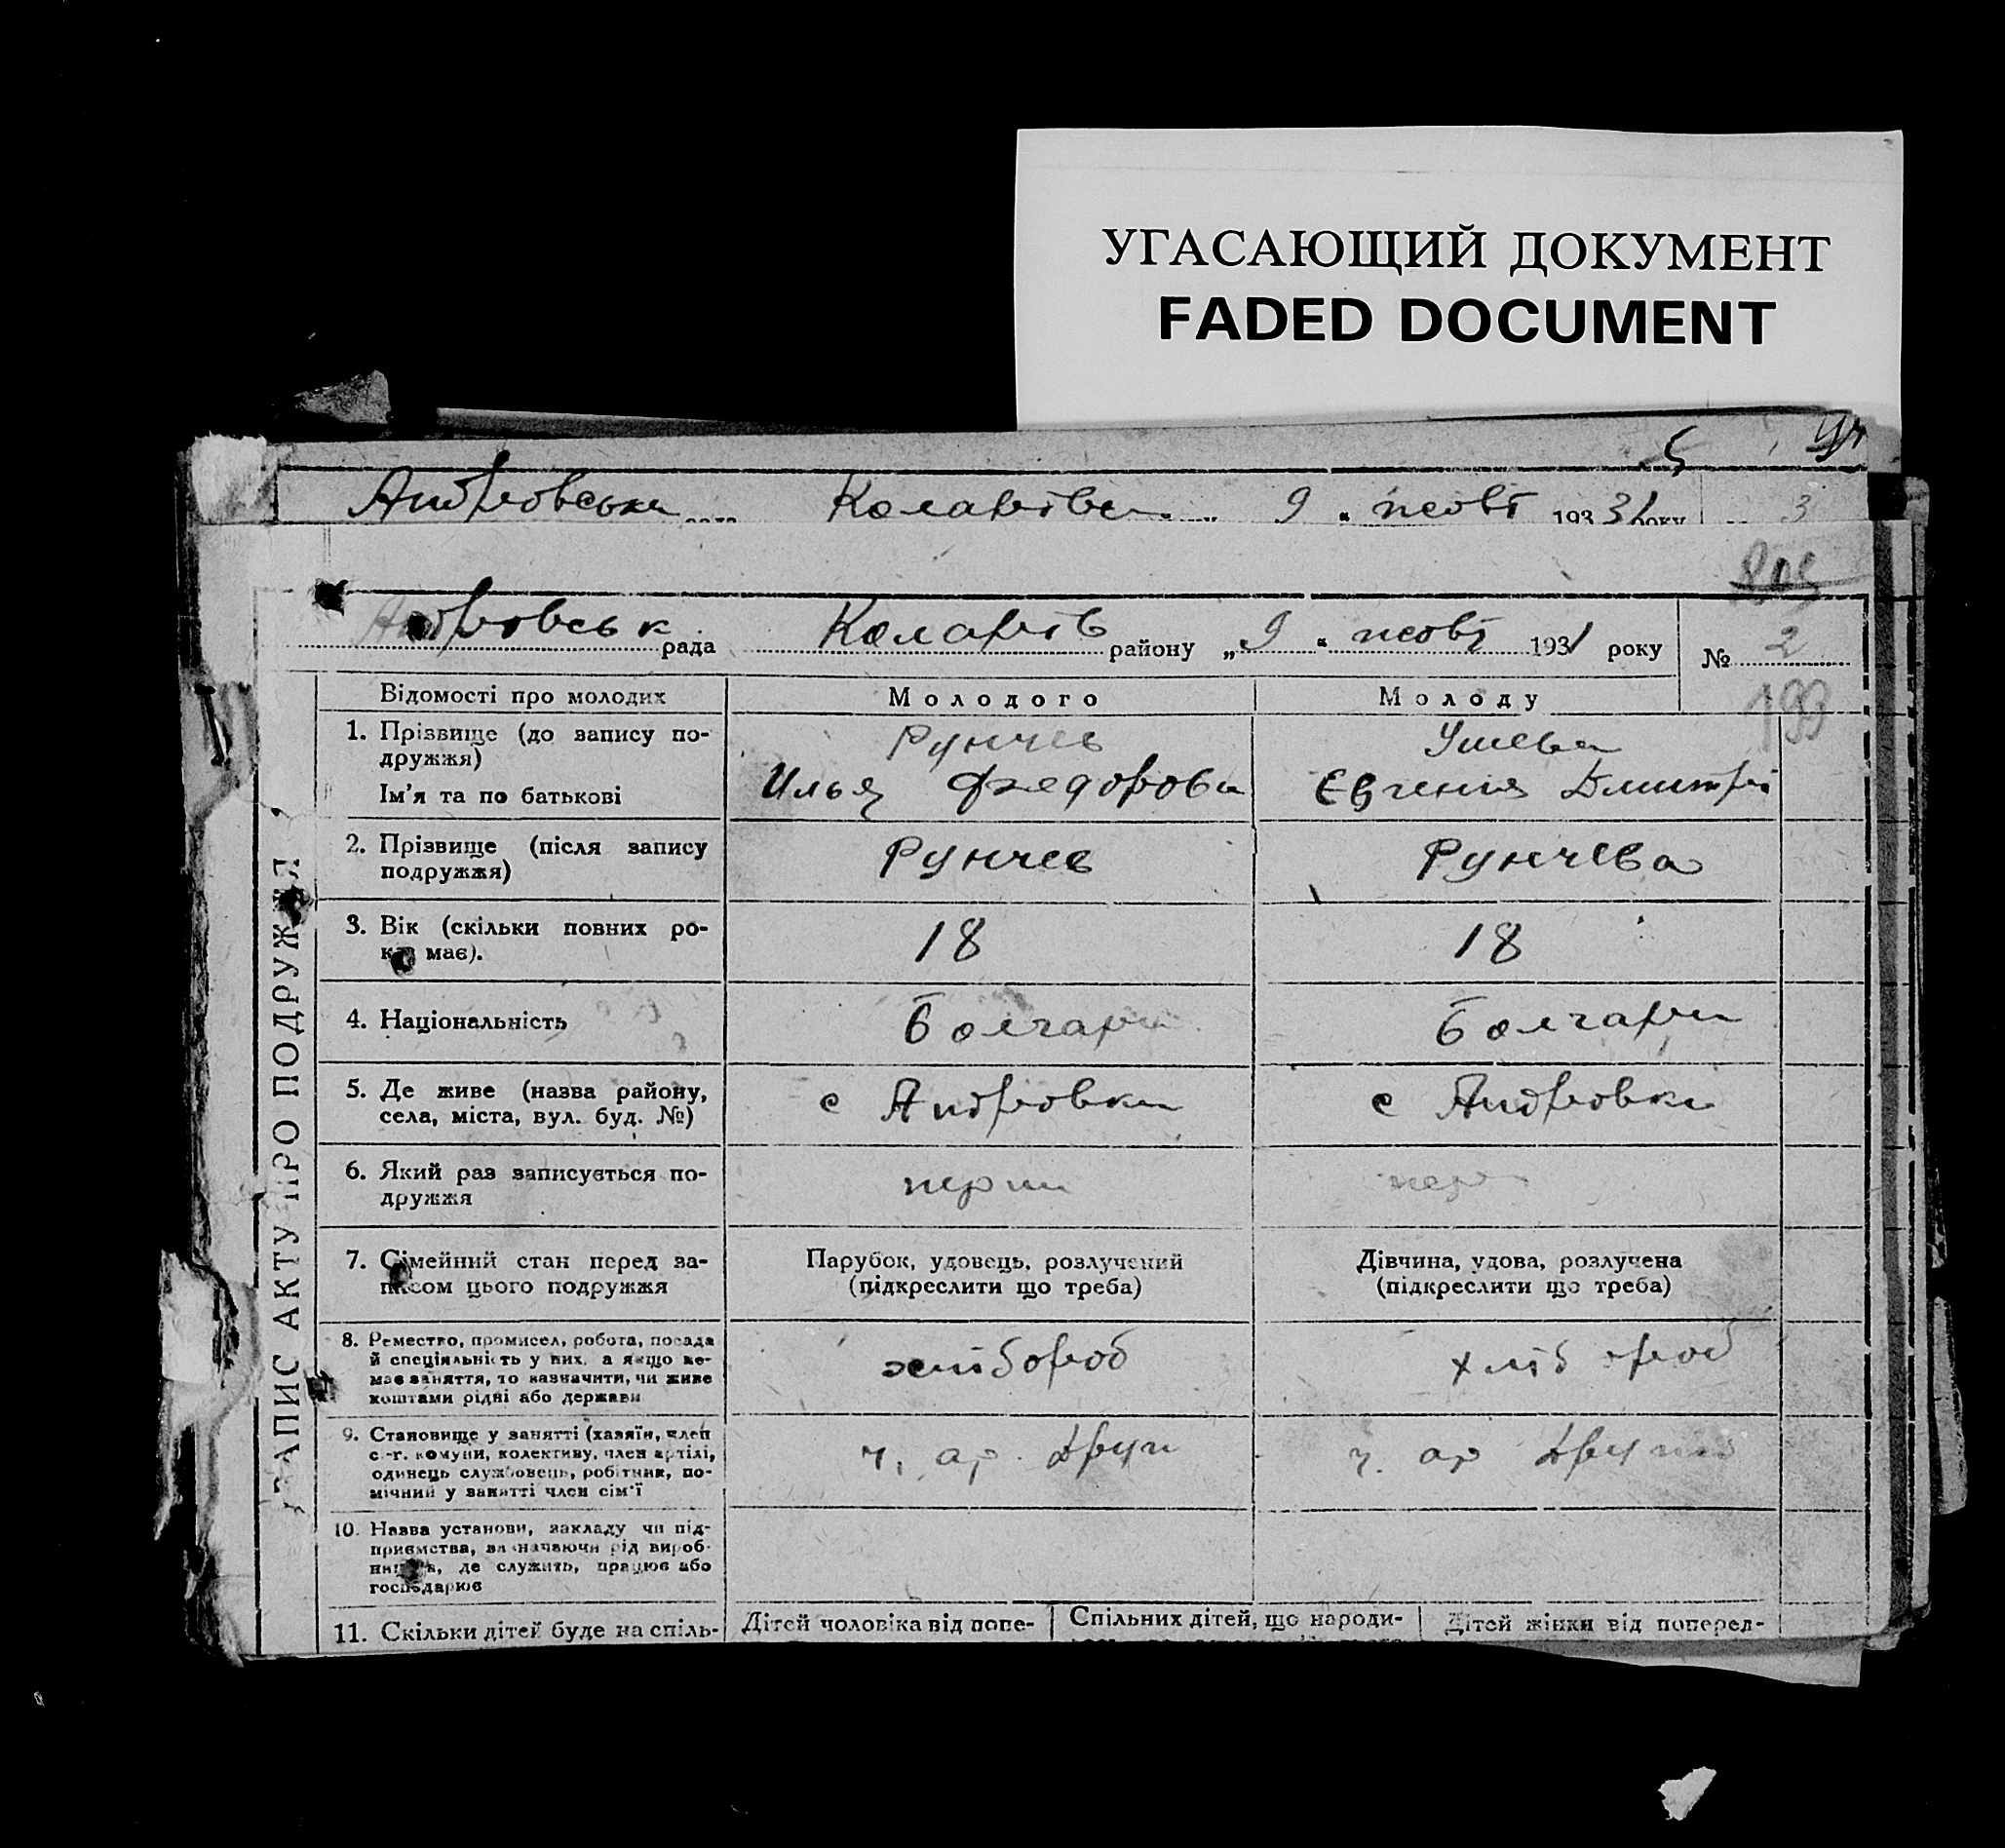 УГАСАЮЩИЙ ДОКУМЕНТ
FADED DOCUMENT
5
Андровська Коларівськ 9 " жовт 1931 року 3
Андровськ рада Коларів району „ 9 " жовт 1931 року № 2
199
ЗАПИС АКТУ ПРО ПОДРУЖЖЯ
Відомості про молодих Молодого Молоду
1. Прізвище (до запису по-
дружжя)
Рунчев Ушева
Ім'я та по батькові
Илья Фхедорови Євгения Дмитрі
2. Прізвище (після запису
подружжя)
Рунчев Рунчева
3. Вік (скільки повних ро-
ків має).
18 18
4. Національність
болгари болгари
5. Де живе (назва району,
села, міста, вул. буд. №)
с Андровки с Андровки
6. Який раз записується по-
дружжя
перши пер
7. Сімейний стан перед за-
писом цього подружжя
Парубок, удовець, розлучений
(підкреслити що треба)
Дівчина, удова, розлучена
(підкреслити що треба)
8. Ремество, промисел, робота, посада
й спеціяльність у них, а якщо не-
має заняття, то зазначити, чи живе
коштами рідні або держави
хлібороб хлібороб
9. Становище у занятті (хазяїн, член
с.-г. комуни, колективу, член артілі,
одинець службовець, робітник, по-
мічний у занятті член сім'ї
ч. ар. ч. ар
10. Назва установи, закладу чи під-
приємства, зазначаючи рід вироб-
ництва, де служить, працює або
господарює
11. Скільки дітей буде на спіль-
Дітей чоловіка від попе-
Спільних дітей, що народи-
Дітей жінки від поперед-